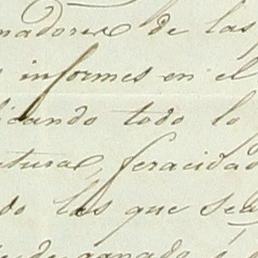 nadores de las
informes en el
licando todo lo
tura, feracidad
do las que sea
ganado